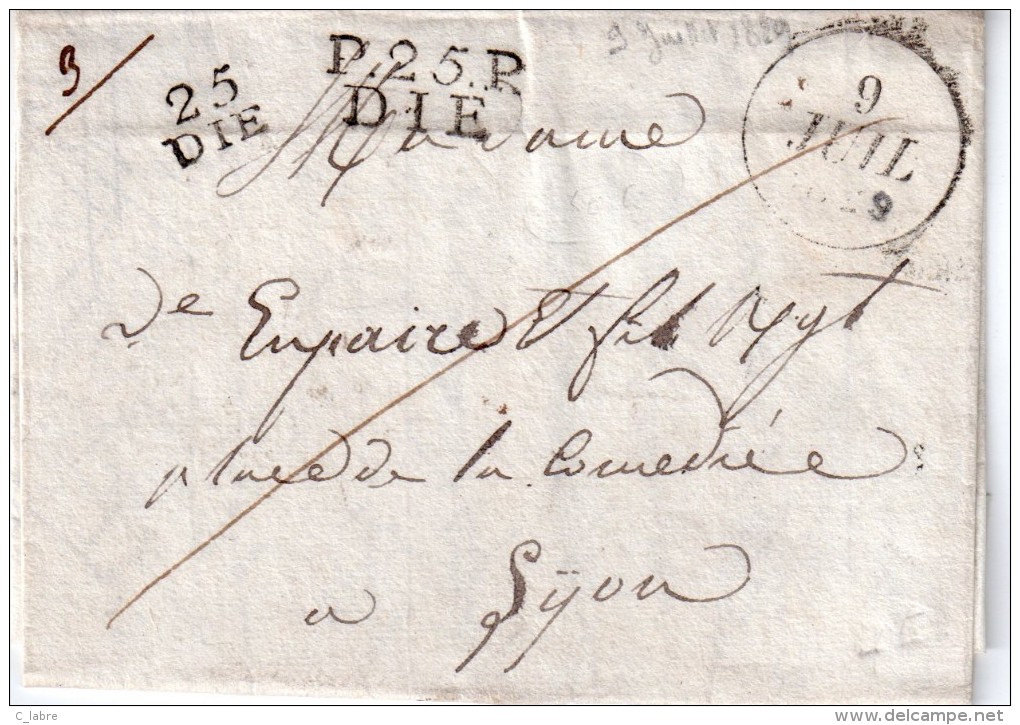 3
25
DIE
P.25.P.
DIE
9 Juillet 1829
9
JUIL
1829
Madame
De Enpaire & fils
place de la Comediée
a Lyon
C_labre
www.delcampe.net